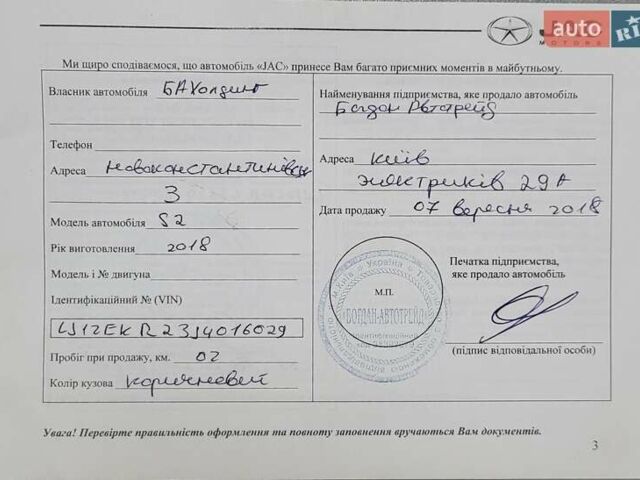 auto
RIA
JAC
MOTORS
Ми щиро сподіваємося, що автомобіль «JAC» принесе Вам багато приємних моментів в майбутньому.
Власник автомобіля БАХолдинг
Телефон
Адреса Новоконстантинівська
3
Модель автомобіля S2
Рік виготовлення 2018
Модель і № двигуна
Ідентифікаційний № (VIN)
LJ12EKR23J4016029
Пробіг при продажу, км. 02
Колір кузова коричневый
Найменування підприємства, яке продало автомобіль
Богдан Автотрейд
Адреса Київ
Электриків 29А
Дата продажу 07 вересня 2018
Печатка підприємства,
яке продало автомобіль
М.П.
БОГДАН-АВТОТРЕЙД
(підпис відповідальної особи)
Увага! Перевірте правильність оформлення та повноту заповнення вручаються Вам документів.
3